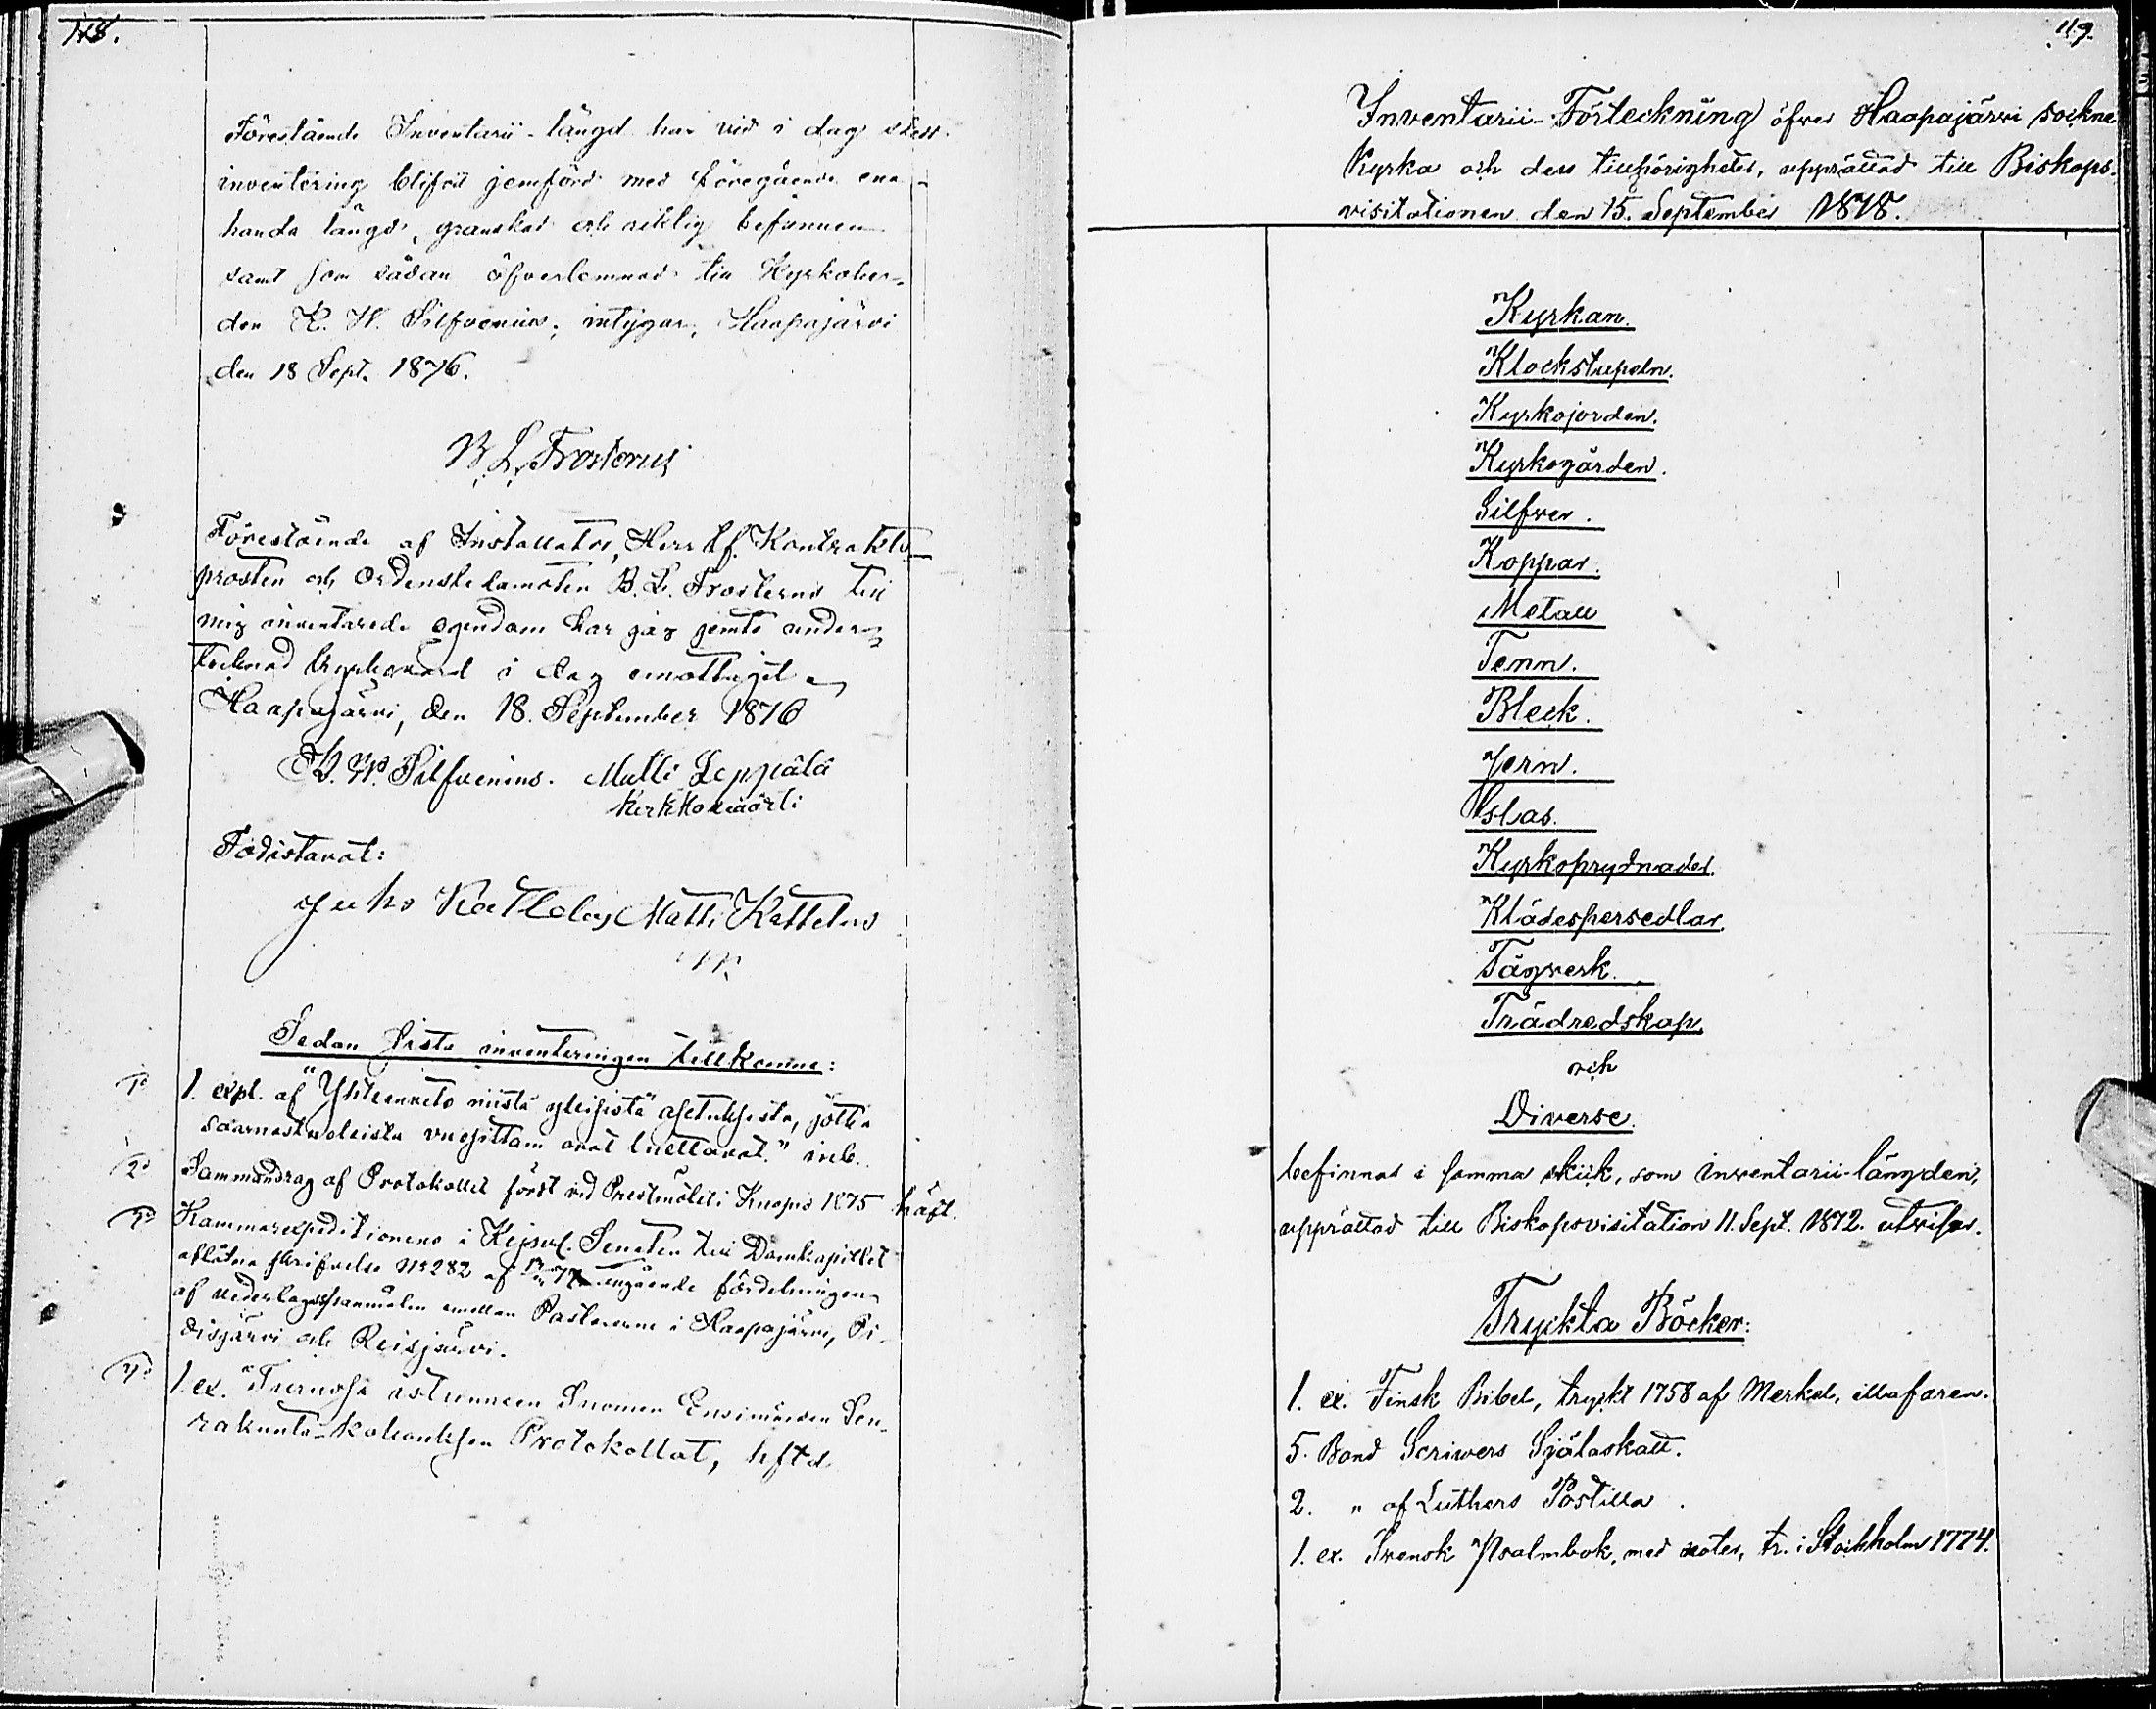 118.
Förestående Inventarii-längd har vid i dag skedd
inventering blifvit jemförd med föregående ena-
handa längd, granskad och riktig befunnen
samt som sådan öfverlemnad till Kyrkoher-
den K. W. Silfvenius; intygar, Haapajärvi
den 18 Sept. 1876.
B. L. Frosterus
Förestående af Installator, Herr tf. Kontrakts-
prosten och Ordensledamoten B. L. Frosterus till
mig inventerade egendom har jag jemte under-
tecknad kyrkovärd i dag emottagit
Haapajärvi, den 18. September 1876
K. W. Silfvenius. Matti Leppälä
Kirkkoväärti
Todistavat:
Juho Kattelus Matti Kattelus
Sedan sista inventeringen tillkomne:
1o 1. expl. af "Yhteenveto niistä yleisistä asetuksista, jotka
saarnastuoleista vuosittain ovat luettavat." inb.
2o Sammandrag af Protokollet fördt vid Prestmötet i Kuopio 1875 häft.
3o Kammarexpeditionens i Kejserl. Senaten till Domkapitlet
aflåtna skrifvelse No 282 af angående fördelningen
af vederlagsspanmålen emellan Pastorerne i Haapajärvi, Pi-
disjärvi och Reisjärvi.
4o 1. ex. "Turussa istunneen Suomen Ensimäisen Seu-
rakunta-kokouksen Protokollat, hftd
119.
Inventarii-Förteckning öfver Haapajärvi sockne
Kyrka och dess tillhörigheter, upprättad till Biskops-
visitationen den 15. September 1878.
Kyrkan.
Klockstapeln.
Kyrkojorden.
Kyrkogården.
Silfver.
Koppar.
Metall
Tenn.
Bleck.
Jern.
Glas.
Kyrkoprydnader.
Klädespersedlar.
Tågverk.
Trädredskap.
och
Diverse.
befinnas i samma skick, som inventarii-längden,
upprättad till Biskopsvisitation 11. Sept. 1872. utvisar.
Tryckta Böcker:
1. ex. Finsk Bibel, tryckt 1758 af Merkel, illafaren.
5. Band Scrivers Själaskatt.
2. " af Luthers Postilla.
1. ex. Svensk Psalmbok, med noter, tr. i Stockholm 1774.